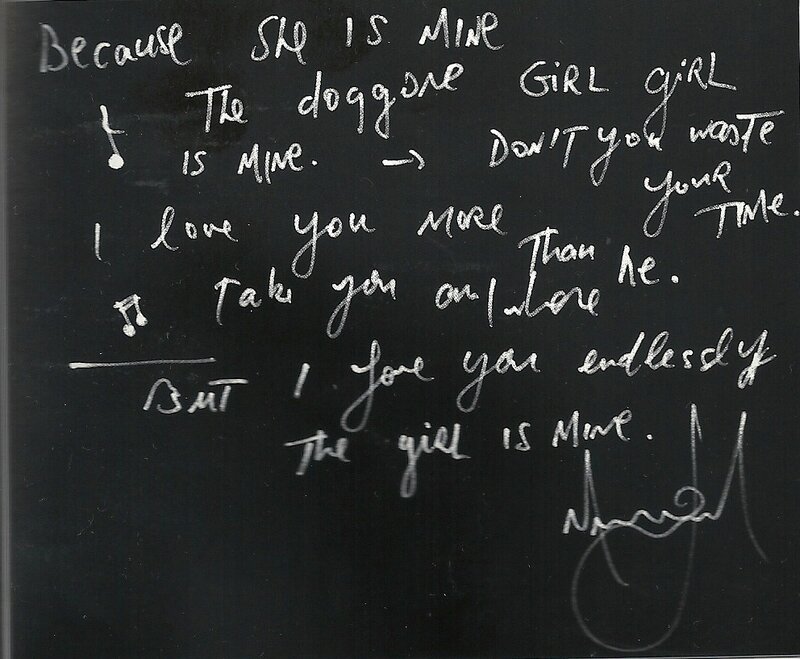 Because She IS MINE
The doggone GIRL gIRL
IS MINE. → DON'T you wasTE
your TIME.
I love you MORE Than he.
Take you anywhere
BUT I love you endlessly
The girl IS MINE.